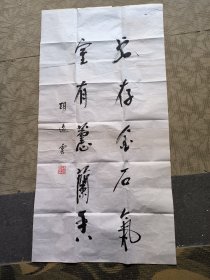 家存金石氣
室有蕙蘭香